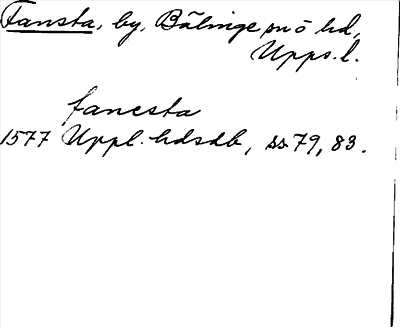 Fansta, by, Bälinge sn o hd,
Upps. l.
fanesta
1577 Uppl. hdsdb, ss 79, 83.